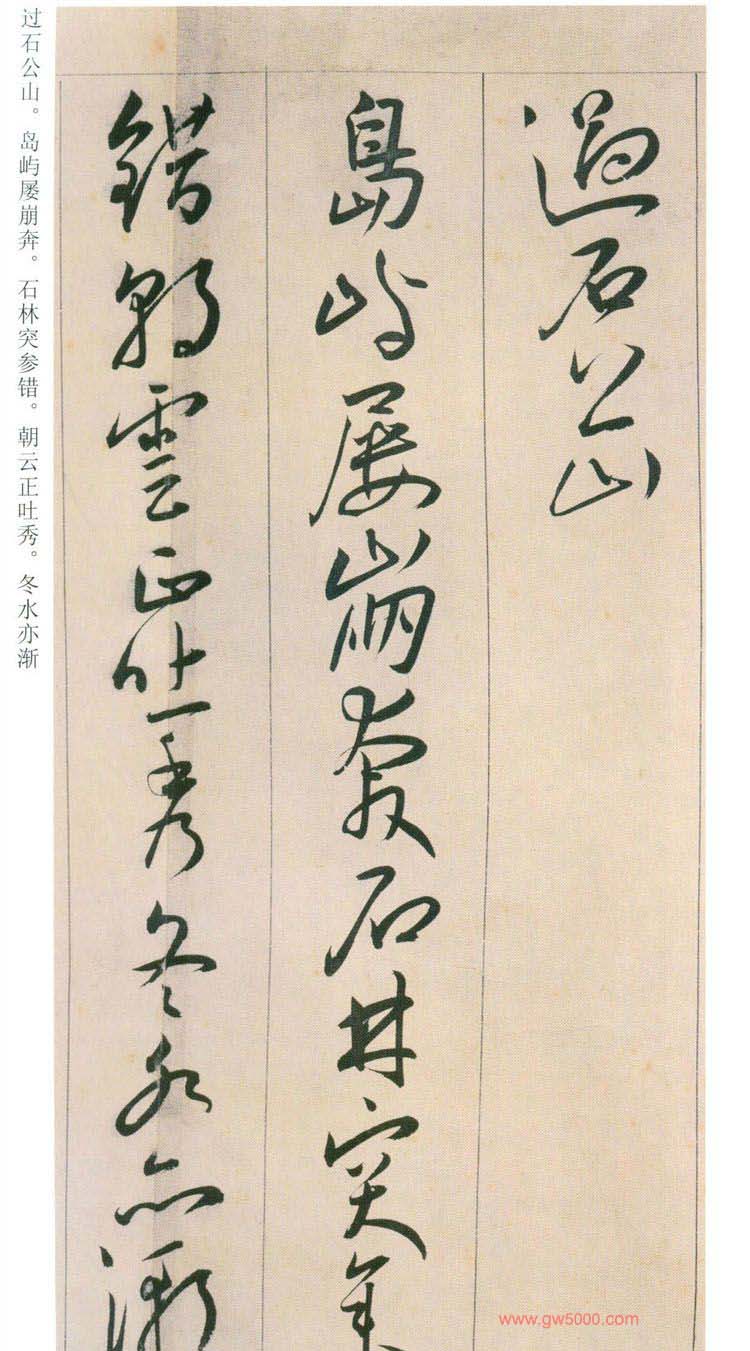 过石公山。岛屿屡崩奔。石林突参错。朝云正吐秀。冬水亦渐
過石公山
島嶼屢崩奔石林突參
錯朝雲正吐秀冬水亦漸
www.gw5000.com